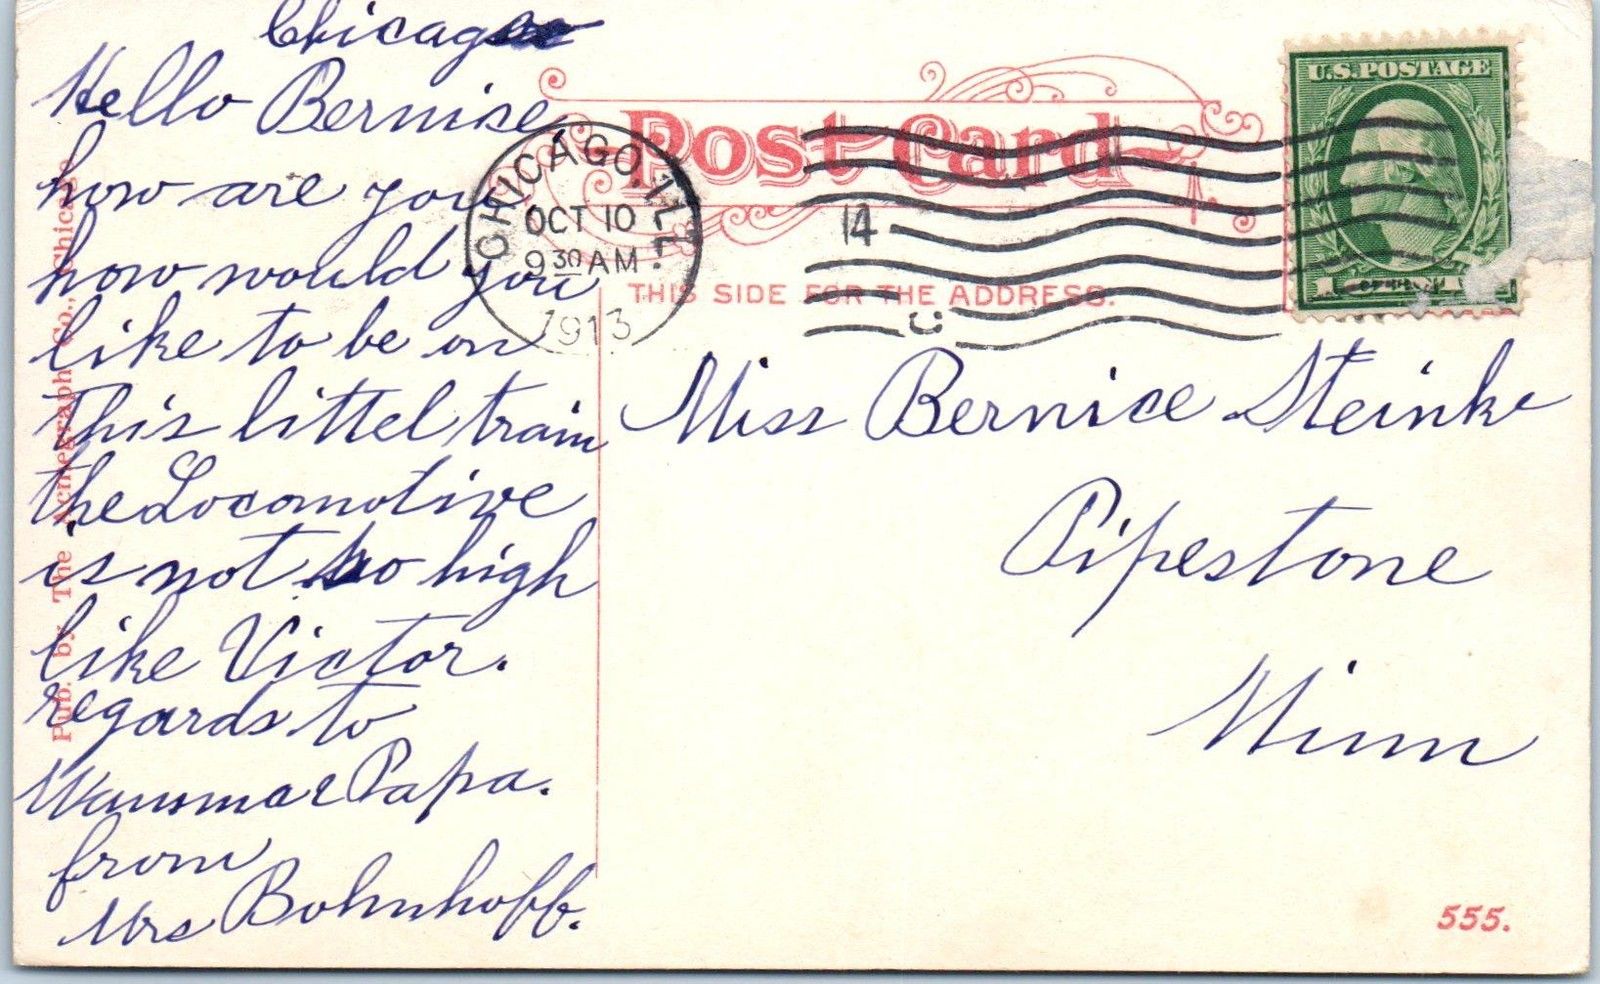 Chicago
Hello Bernice
how are you
how would you
like to be on
This littel train
the Locomotive
is not so high
like Victor.
regards to
Papa.
from
Mrs Bohnhoff.
Pub. by The Acmegraph Co., Chicago
Post Card
THIS SIDE FOR THE ADDRESS.
CHICAGO, ILL.
OCT 10
9 30 AM
1913
14
C
U.S. POSTAGE
Miss Bernice Steinke
Pipestone
Minn
555.